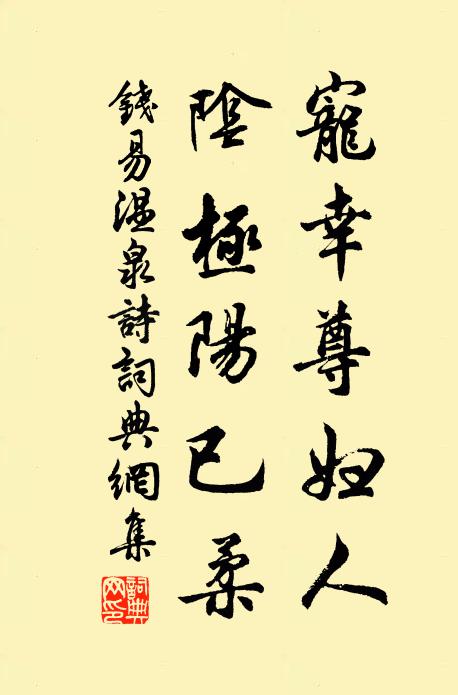 寵幸尊妇人
陰極陽已柔
錢易温泉詩詞典網集
詞典網印